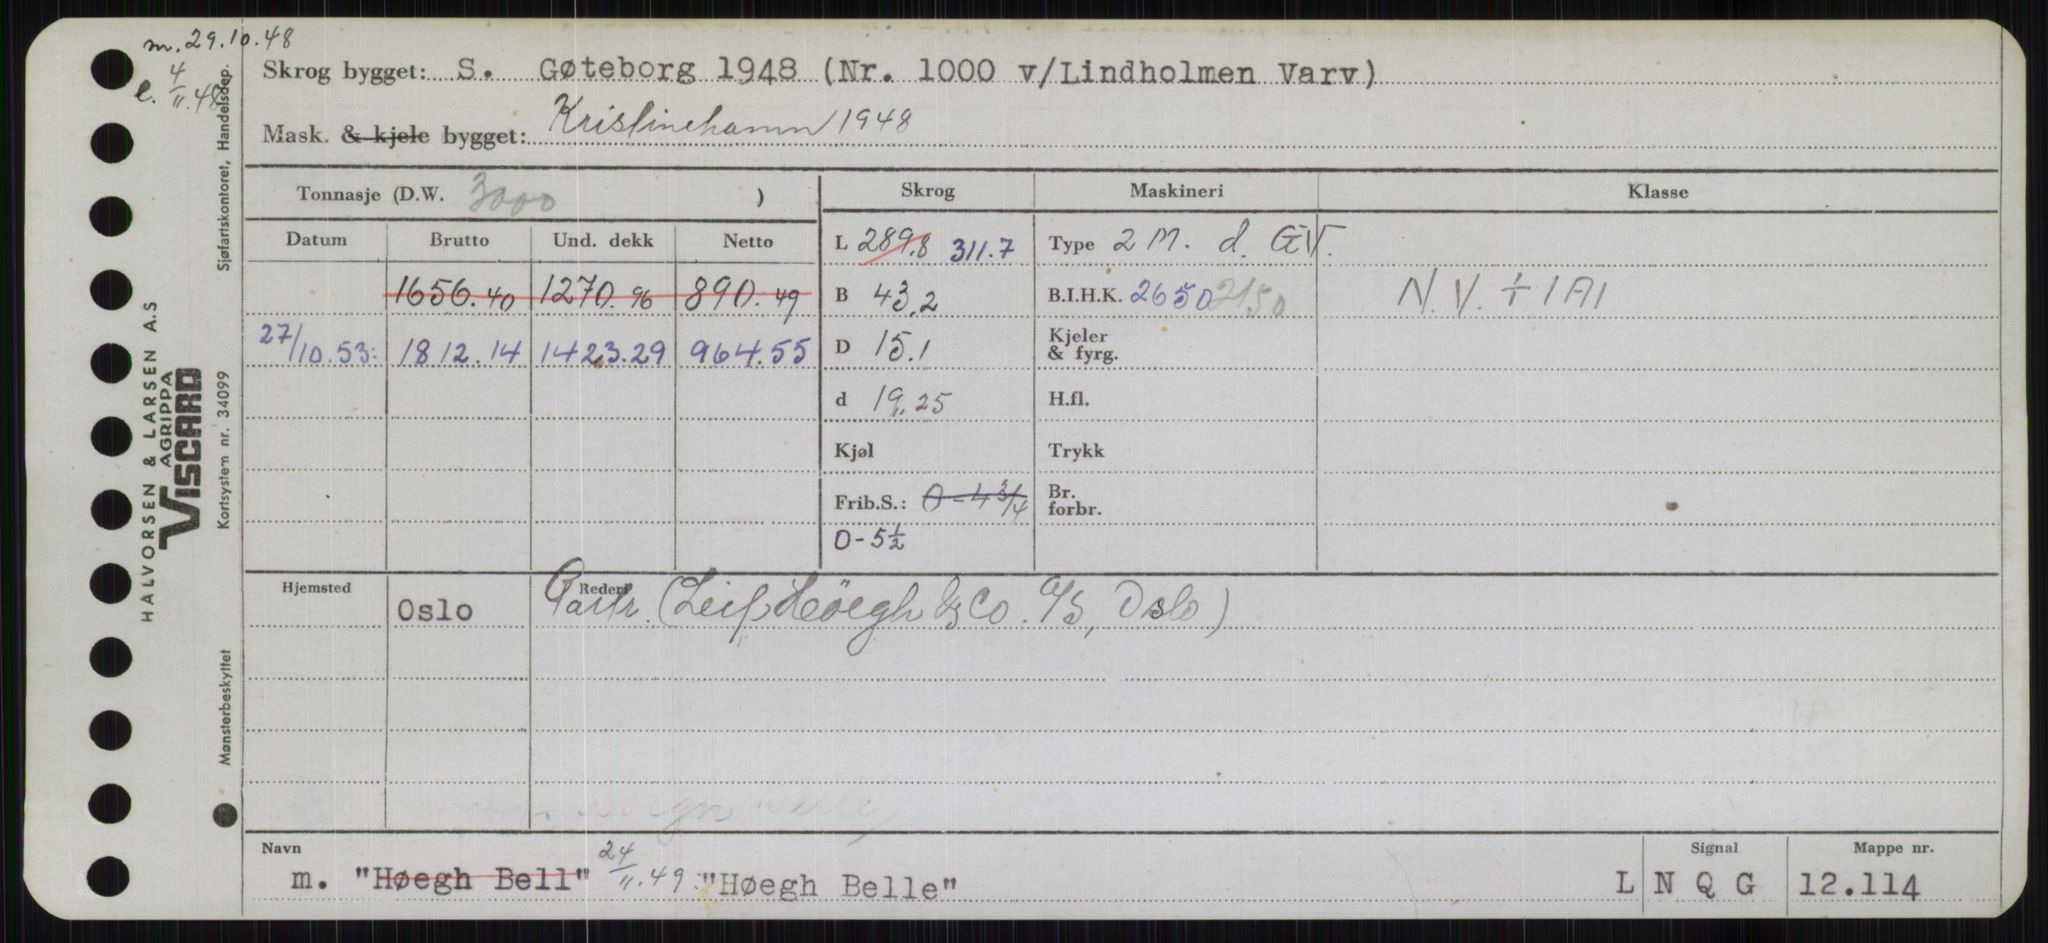 m. 29.10.48
e. 4/11.48
Skrog bygget: S. Gøteborg 1948 (Nr. 1000 v/Lindholmen Varv)
Mask. & kjele bygget: Kristinehamn 1948
Tonnasje (D.W. 3000 )
Skrog Maskineri Klasse
Datum Brutto Und. dekk Netto
L 289,8 311.7 Type 2 M. d. GV.
1656.40 1270.96 890.49 B 43,2 B.I.H.K. 2650 2150 N.V. + 1A1
27/10.53: 1812.14 1423.29 964.55 D 15.1 Kjeler & fyrg.
d 19,,25 H.fl.
Kjøl Trykk
Frib.S.: 0-4 3/4 Br. forbr.
0-5½
Hjemsted Rederi
Oslo Partr. (Leif Höegh & Co. A/S, Oslo)
Navn Signal Mappe nr.
m. "Høegh Bell" 24/11.49 "Høegh Belle" L N Q G 12.114
HALVORSEN & LARSEN A.S
AGRIPPA
VISCARD
Mønsterbeskyttet Kortsystem nr. 34099 Sjøfartskontoret, Handelsdep.